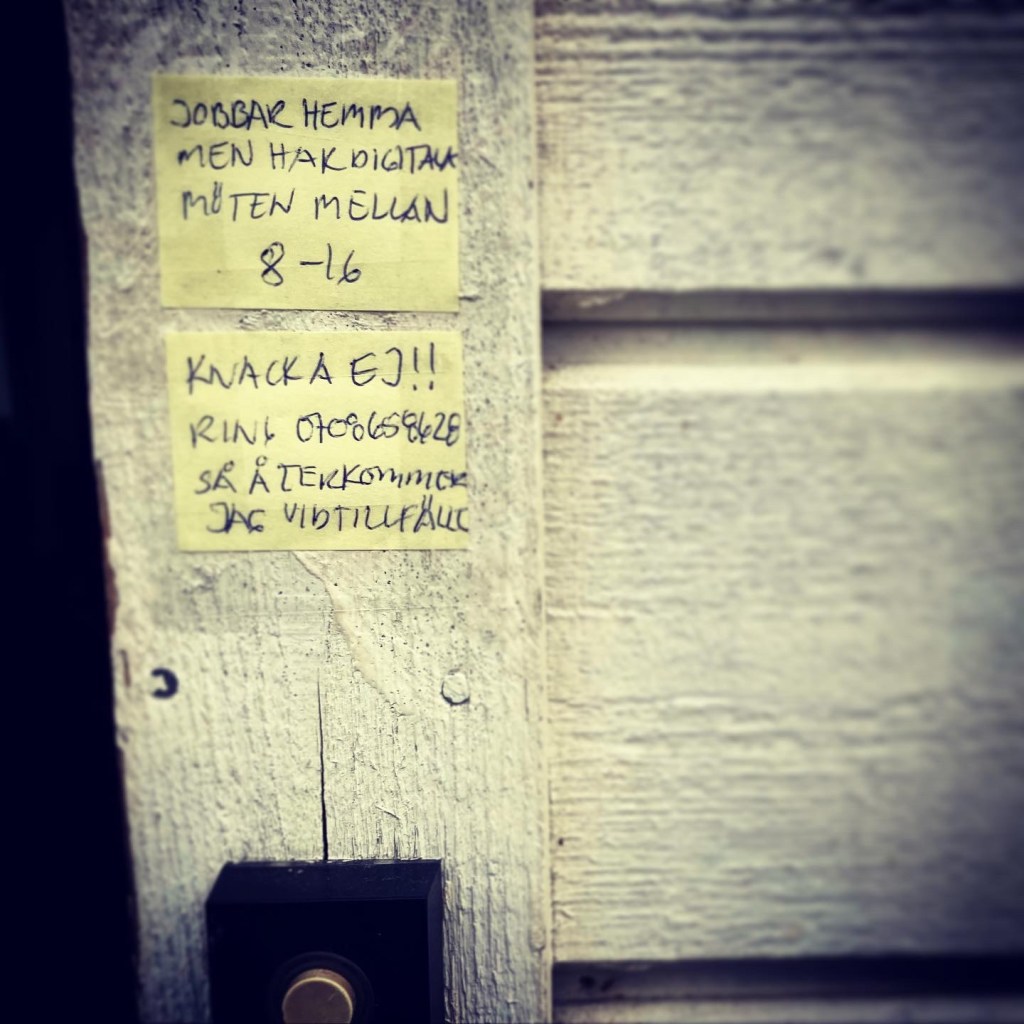 JOBBAR HEMMA
MEN HAR DIGITALA
MÖTEN MELLAN
8-16
KNACKA EJ!!
RING 0708658628
SÅ ÅTERKOMMER
JAG VID TILLFÄLLE